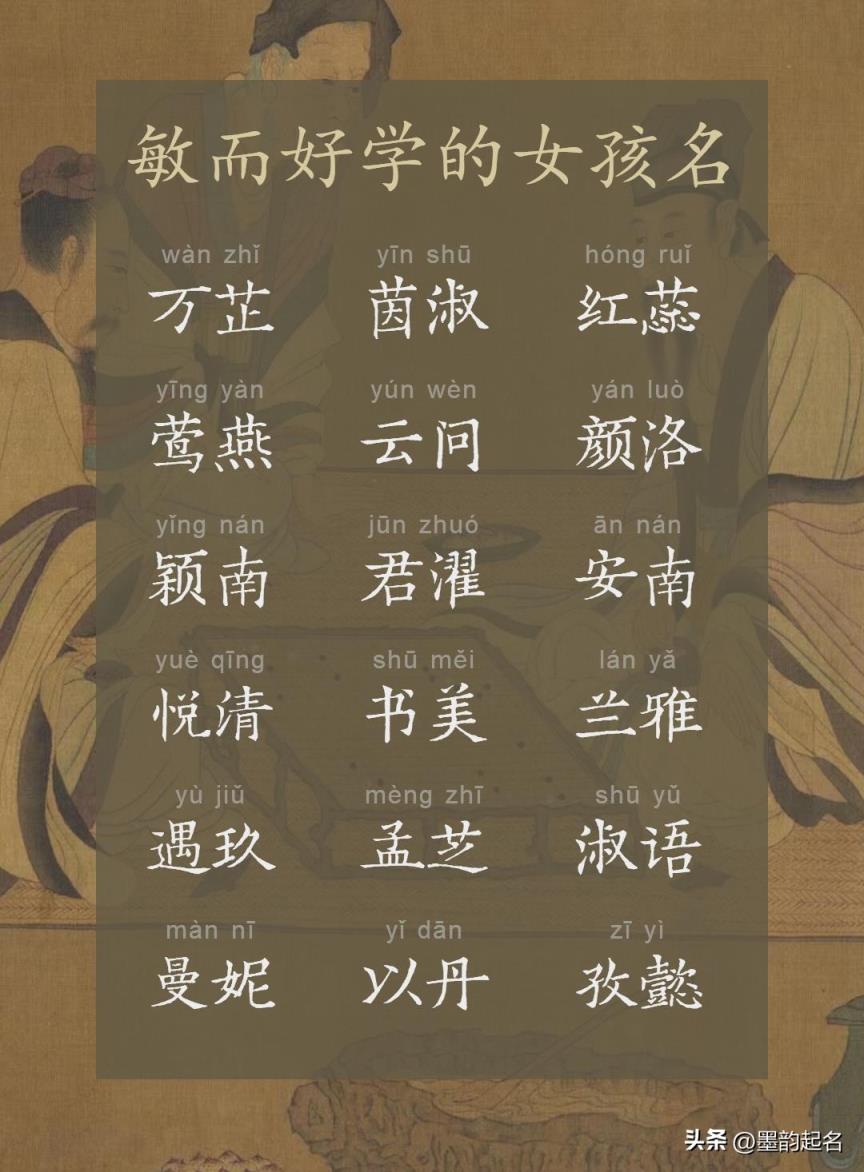 敏而好学的女孩名
wàn zhǐ yīn shū hóng ruǐ
万芷 茵淑 红蕊
yīng yàn yún wèn yán luò
莺燕 云问 颜洛
yǐng nán jūn zhuó ān nán
颖南 君濯 安南
yuè qīng shū měi lán yǎ
悦清 书美 兰雅
yù jiǔ mèng zhī shū yǔ
遇玖 孟芝 淑语
màn nī yǐ dān zī yì
曼妮 以丹 孜懿
头条 @墨韵起名